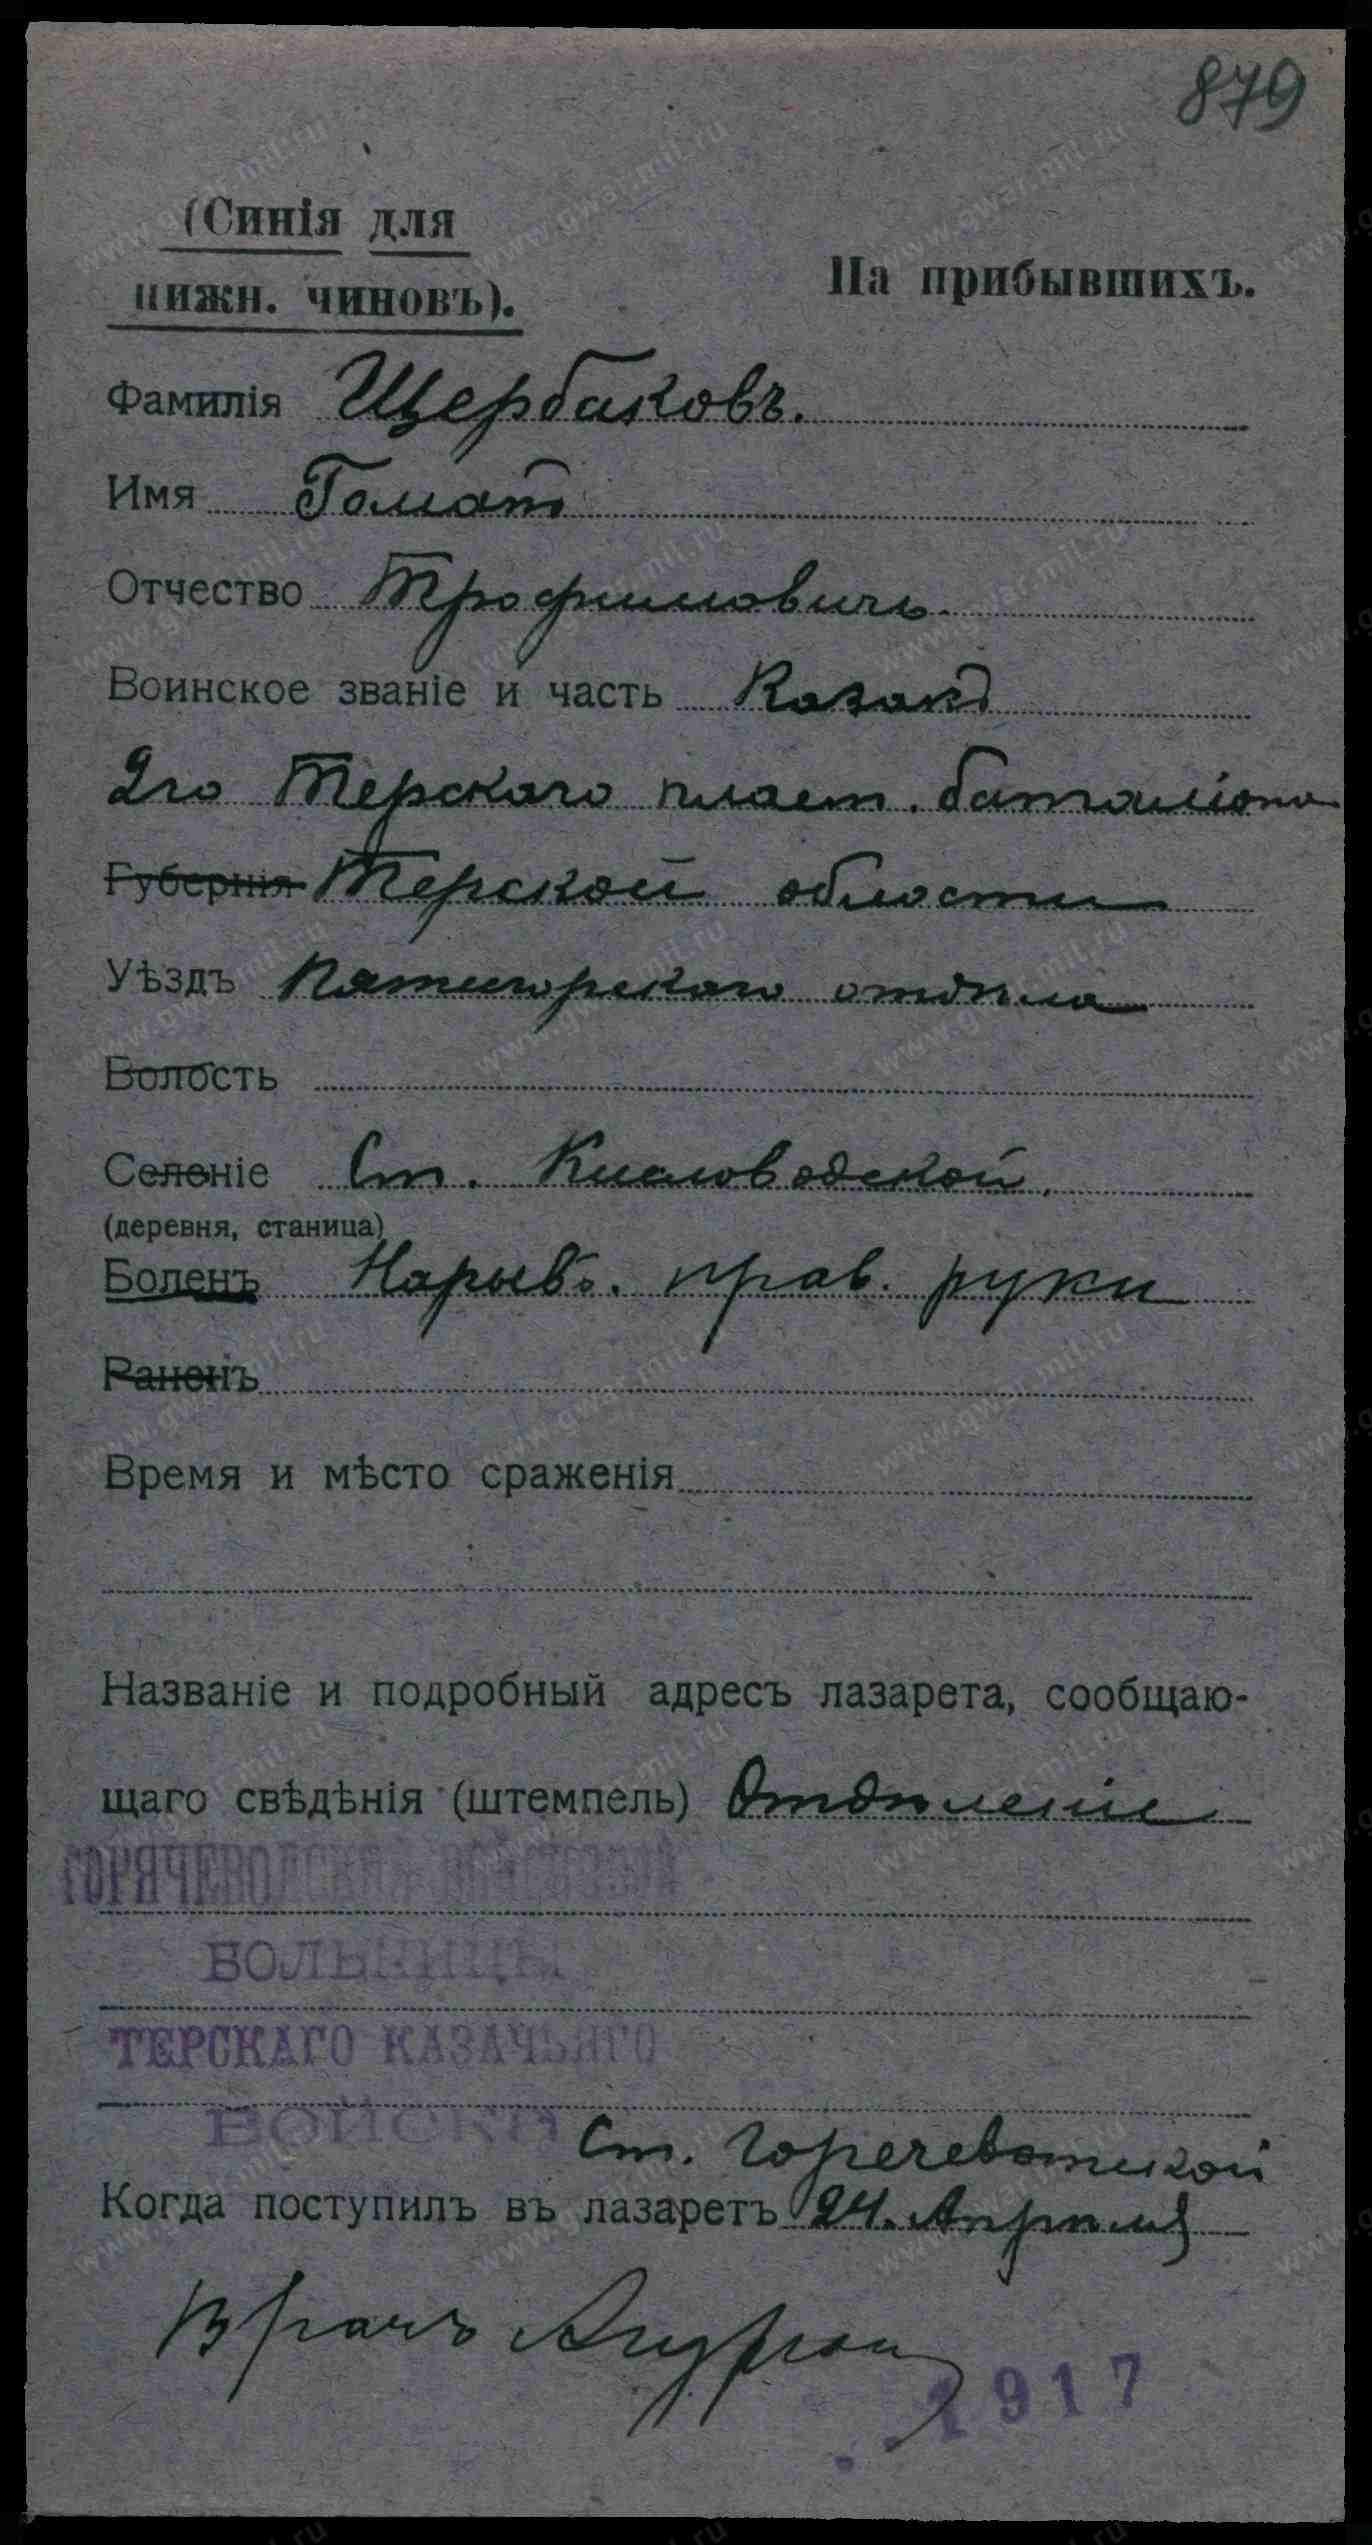 879
(Синія для
нижн. чиновъ).
На прибывшихъ.
Фамилія Щербаковъ.
Имя
Отчество Трофимовичъ
Воинское званіе и часть Казакъ
2го Терскаго пласт. баталіона
Губернія Терской области
Уѣздъ Пятигорскаго отдѣла
Волость
Селеніе Ст. Кисловодской.
(деревня, станица)
Боленъ Нарывъ. прав. руки
Раненъ
Время и мѣсто сраженія
Названіе и подробный адресъ лазарета, сообщаю-
щаго свѣдѣнія (штемпель) Отдѣленіе
ГОРЯЧЕВОДСКАЯ
БОЛЬНИЦЫ
ТЕРСКАГО КАЗАЧЬЯГО
ВОЙСКА
Ст. Горечеводской
Когда поступилъ въ лазаретъ 24. Апрѣля
Врачъ
1917